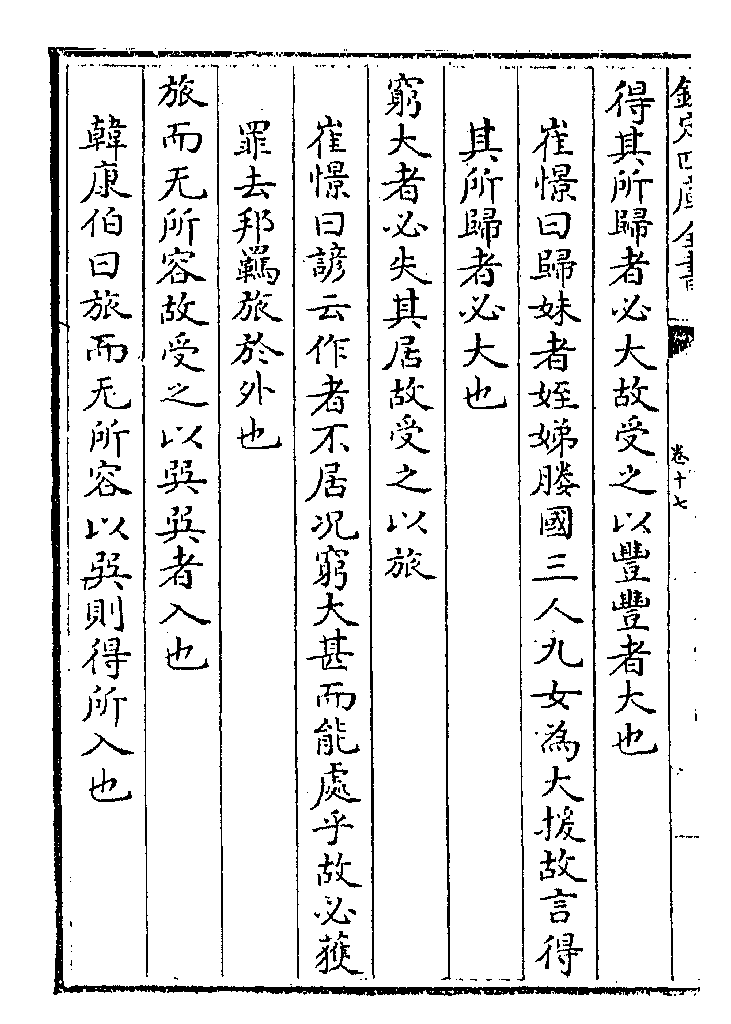 欽定四庫全書
卷十七
得其所歸者必大故受之以豐豐者大也
崔憬曰歸妹者姪娣媵國三人九女為大援故言得
其所歸者必大也
窮大者必失其居故受之以旅
崔憬曰諺云作者不居况窮大甚而能處乎故必獲
罪去邦羈旅於外也
旅而无所容故受之以巽巽者入也
韓康伯曰旅而无所容以巽則得所入也